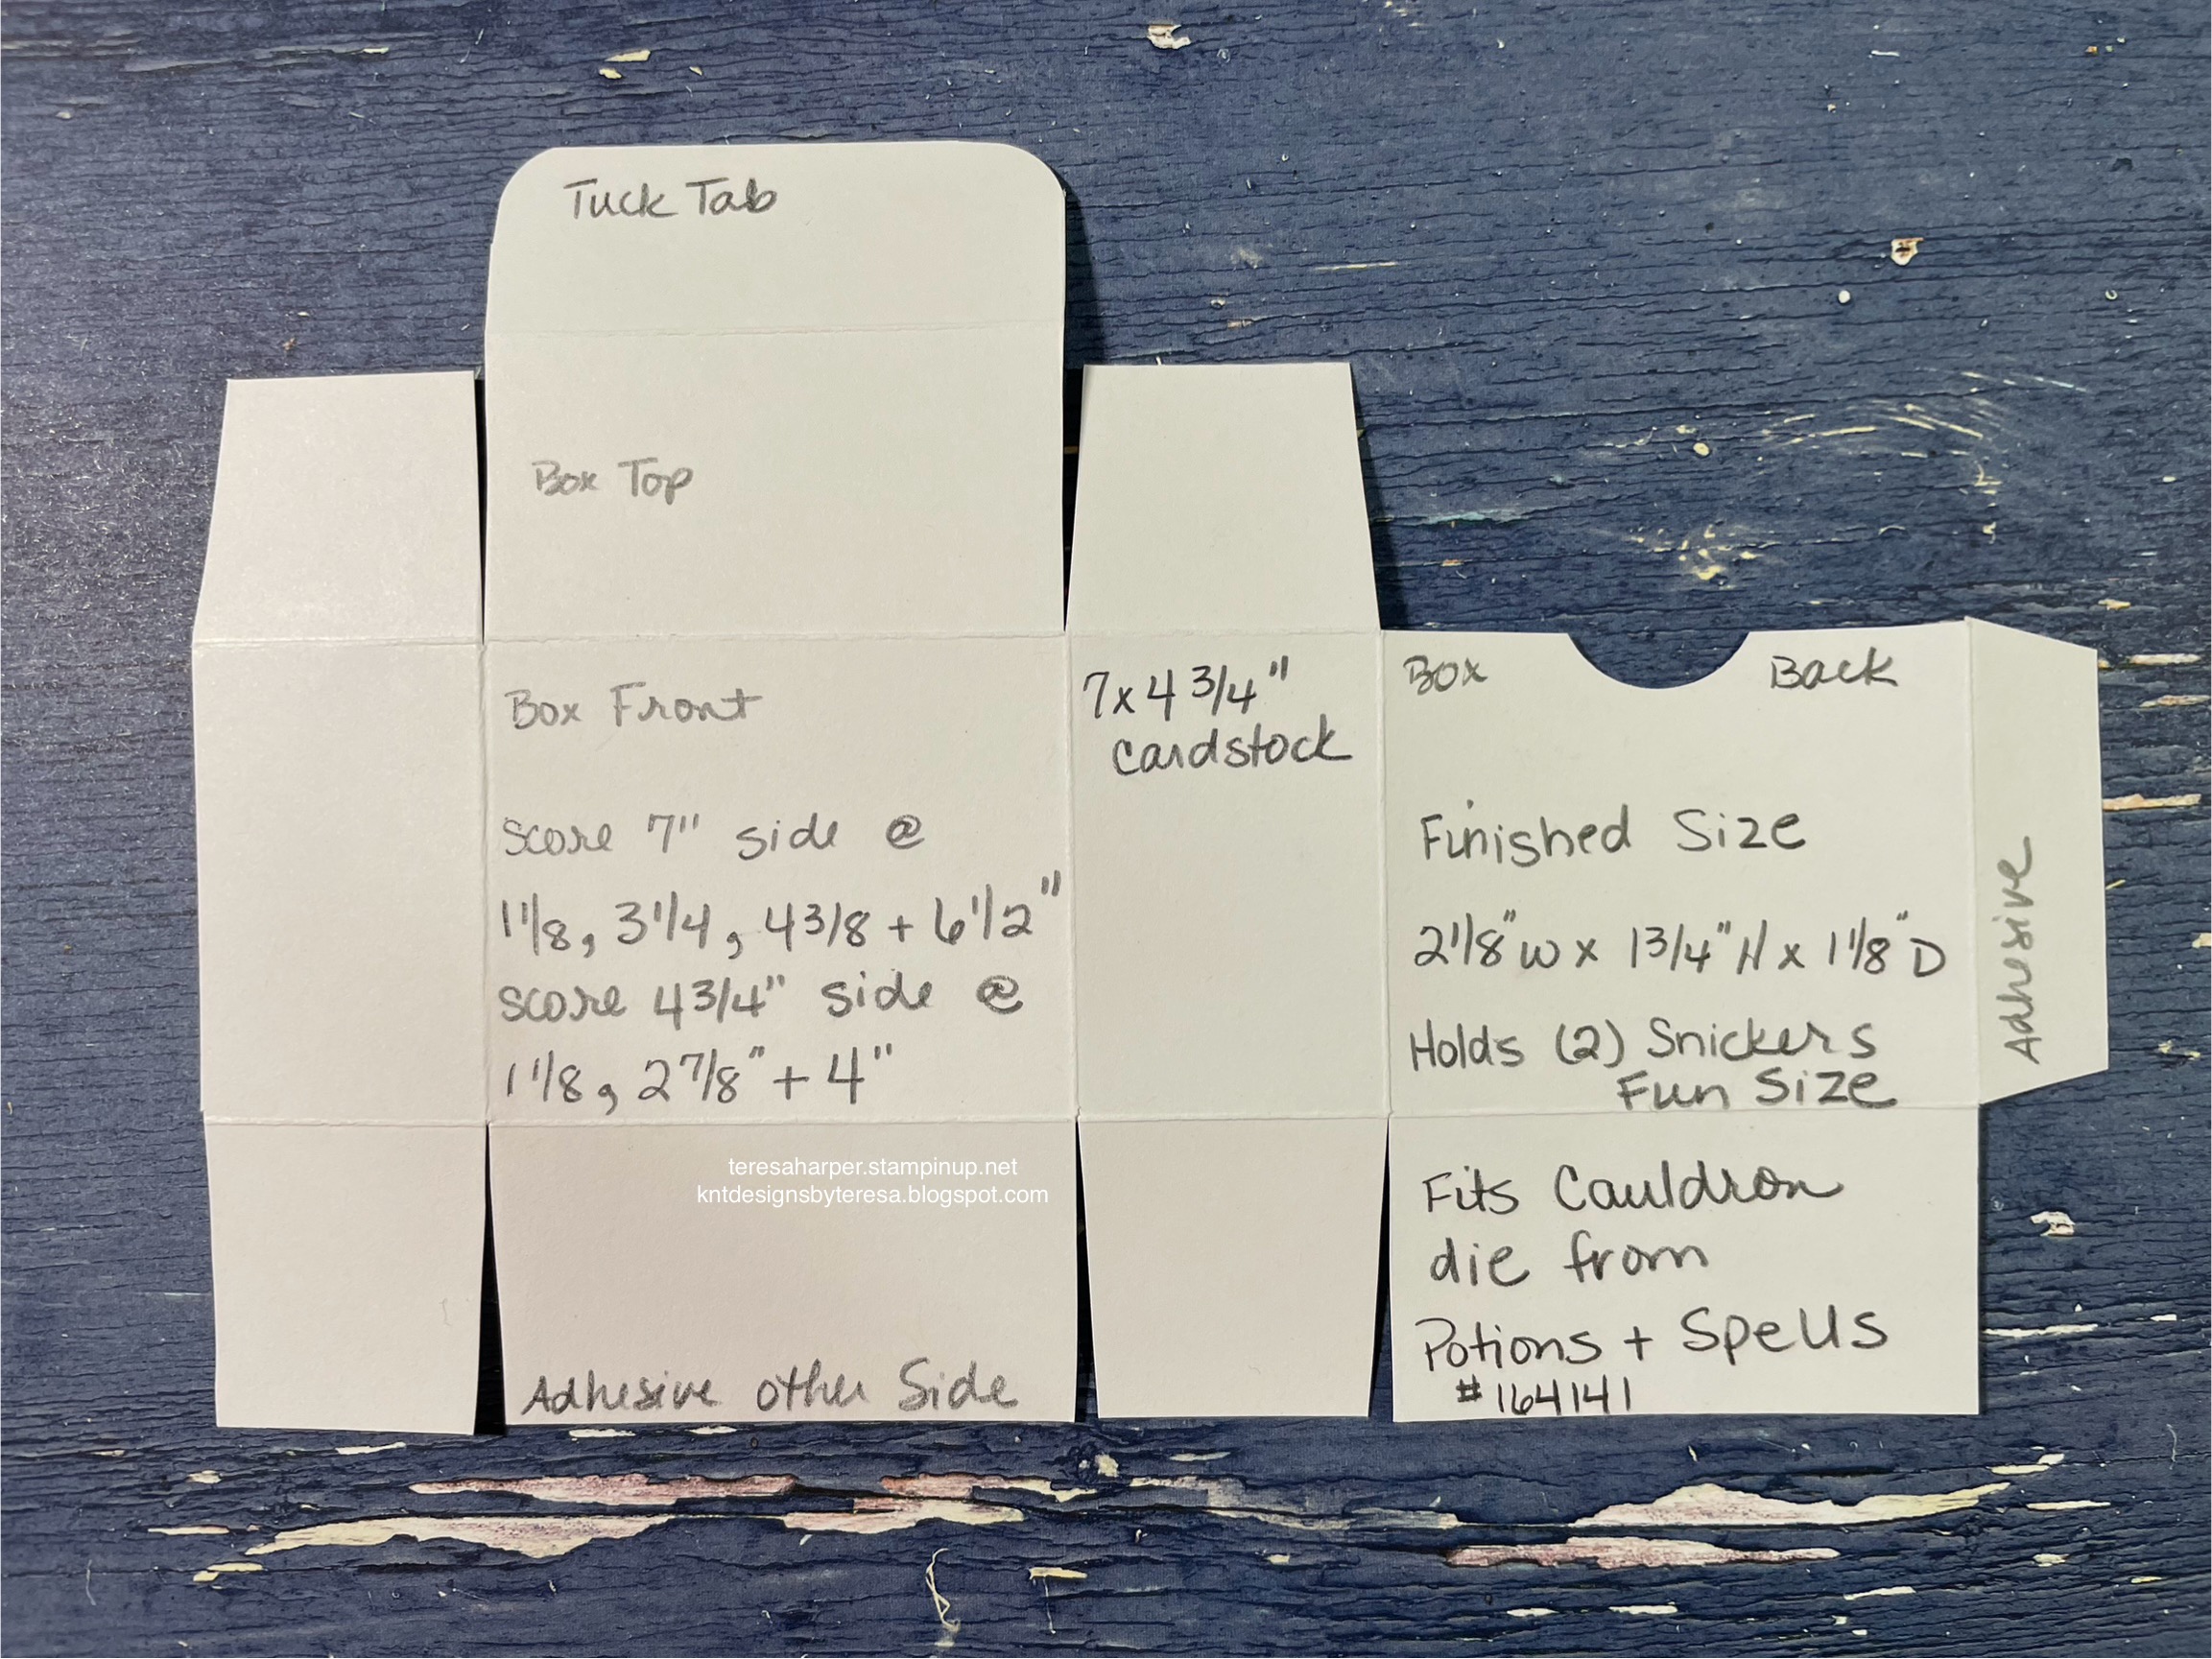 Tuck Tab
Box Top
Box Front
Score 7" side @
1 1/8, 3 1/4, 4 3/8 + 6 1/2"
score 4 3/4" side @
1 1/8, 2 7/8" + 4"
teresaharper.stampinup.net
kntdesignsbyteresa.blogspot.com
Adhesive other Side
7 x 4 3/4"
Cardstock
Box Back
Finished Size
2 1/8" W x 1 3/4" H x 1 1/8" D
Holds (2) Snickers
Fun Size
Fits Cauldron
die from
Potions + Spells
#164141
Adhesive